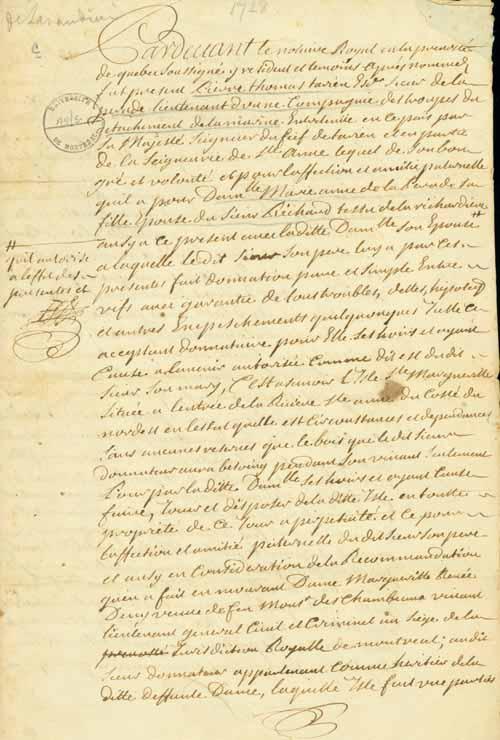 de Lanaudiere
1728
C
Pardevant le notaire Royal en la prevosté
de quebec soussigné y resident et temoins apres nommez
fut present Pierre thomas tarieu Esr Sieur de la
perade lieutenant d'une Compagnie des troupes du
detachement de la marine Entretenue en ce pais par
Sa Majesté Seigneur du fief de tarieu et en partie
de la Seigneurie de Ste Anne lequel de son bon
gré et volonté et pour l'affection et amitié paternelle
qu'il a pour Damlle Marie anne de la Perade sa
fille Epouse du Sieur Richard testu de la richardiere
aussy a ce present avec la ditte Damlle son Epouse
#
a laquelle le dit Sieur son pere luy a par ces
presentes fait donnation pure et simple Entre
vifs avec garantie de tous troubles, dettes, hipoteq
et autres Empeschements quelquonques Icelle ce
acceptant donnataire pour Elle ses hoirs et ayant
Cause a l'avenir autorisée Comme dit est du dit
Sieur Son mary, C'est a scavoir l'Isle Ste Margueritte
Située a l'entrée de la Riviere Ste anne du Costé du
nordest en l'estat quelle est Circonstances et dependances
Sans aucunes reserves que le bois que le dit Sieur
donnateur aura besoing pendant Son vivant Seulement
Pour par la ditte Damlle Ses hoirs et ayant Cause
faire, Jouir et disposer de la ditte Isle en toutte
propriété de ce Jour a perpetuité et ce pour
l'affection et amitié paternelle du dit Sieur Son pere
et aussy en Consideration de la Recommandation
qu'en a fait en mourant Dame Margueritte Renée
Denys veuve de feu Monsr de Chambeuna vivant
lieutenant general Civil et Criminel au Siege de la
Jurisdiction Royalle de montreal; au dit
Sieur donnateur appartenant comme heritier de la
ditte deffunte Dame, laquelle Isle fait une partie
#
qu'il autorise
a l'effet des
presentes et
UNIVERSITÉ
DE MONTRÉAL